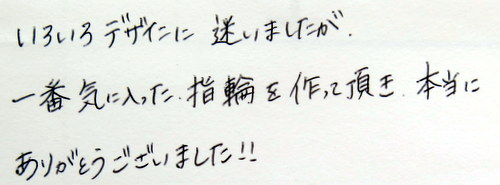 いろいろデザインに 迷いましたが.
一番気に入った.指輪を作って頂き.本当に
ありがとうございました!!